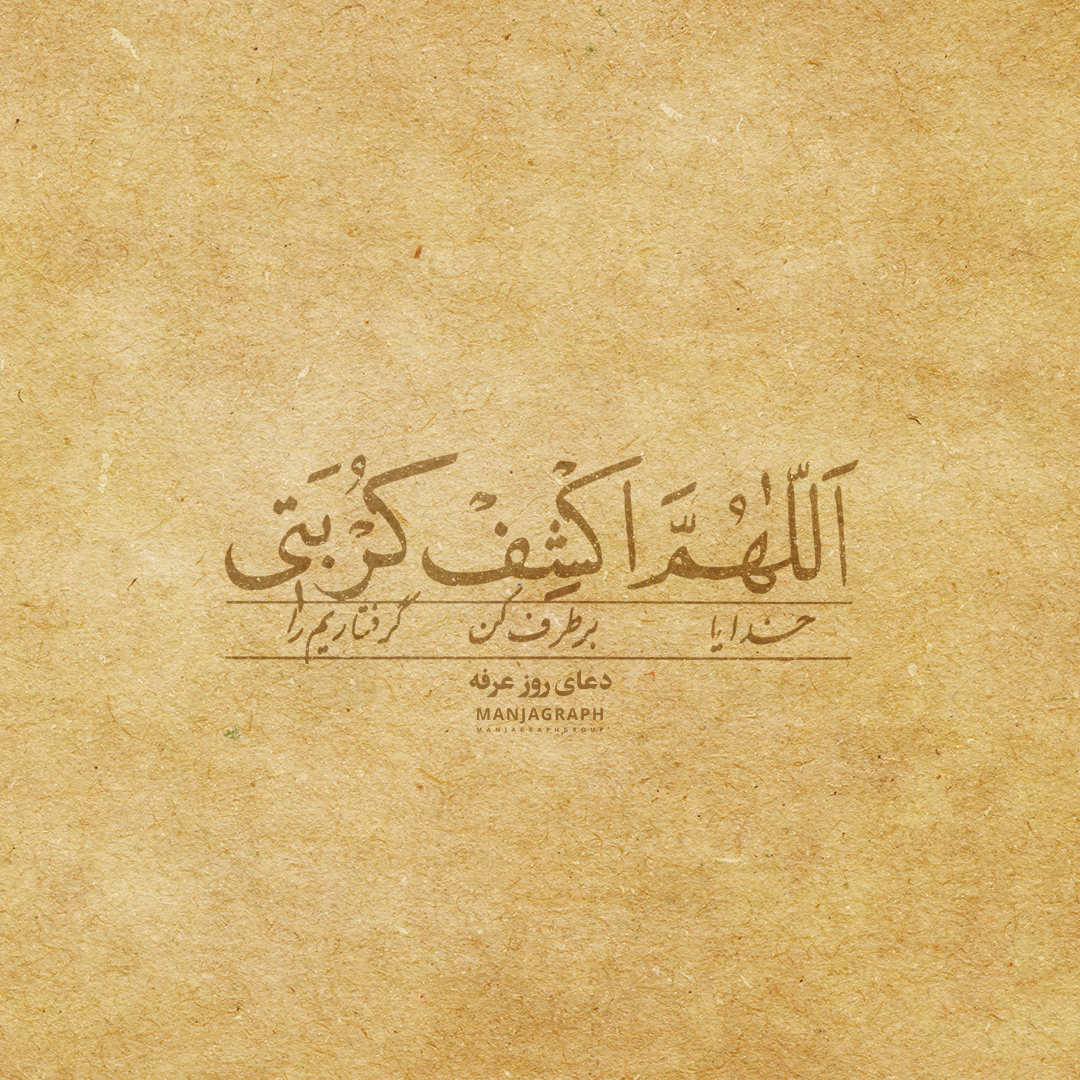 اَللّٰهُمَّ اکْشِفْ کُرْبَتی
خدایا برطرف کن گرفتاریم را
دعای روز عرفه
MANJAGRAPH
MANJAGRAPHGROUP